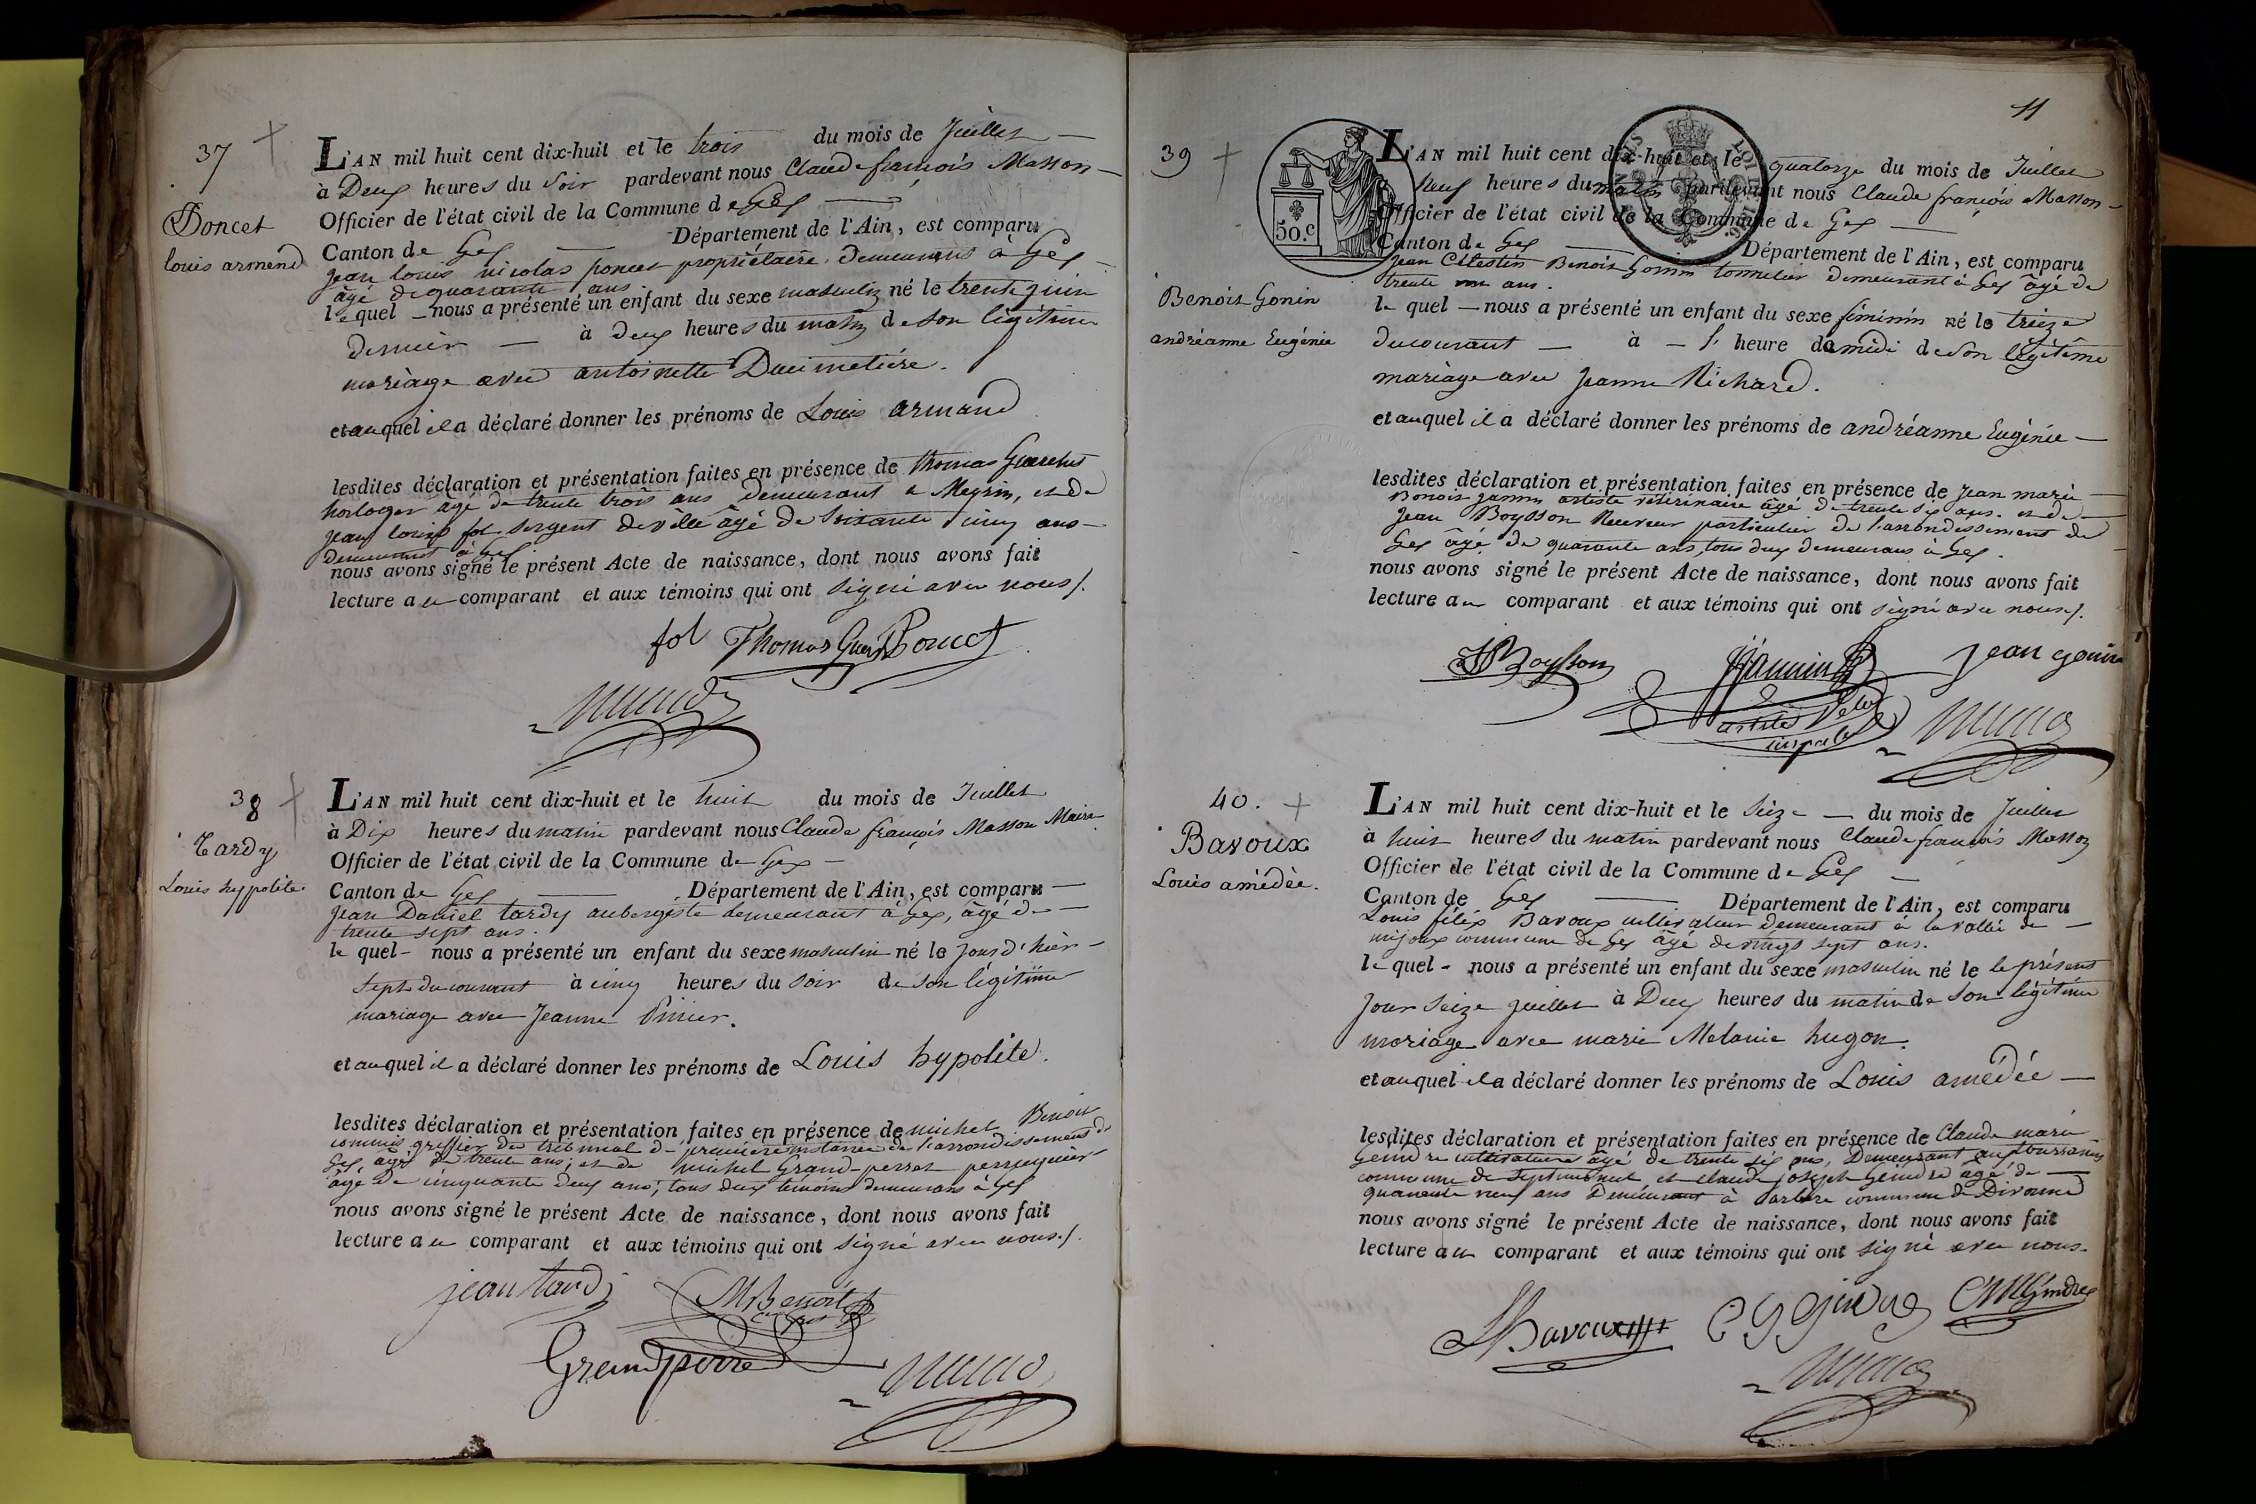 37
Poncet
louis armand
L'AN mil huit cent dix-huit et le trois du mois de Juillet
à Deux heures du Soir pardevant nous Claude françois Masson
Officier de l'état civil de la Commune de Gex
Canton de Gex Département de l'Ain, est comparu
jean louis nicolas poncet propriétaire demeurant à Gex
âgé de quarante ans
lequel nous a présenté un enfant du sexe masculin né le trente juin
dernier à deux heures du matin de son légitime
mariage avec antoinette Ducimetière.
et auquel il a déclaré donner les prénoms de Louis armand
lesdites déclaration et présentation faites en présence de thomas
horloger âgé de trente trois ans demeurant a Meyrin, et de
jean louis fol sergent de ville âgé de soixante cinq ans
demeurant à Gex
nous avons signé le présent Acte de naissance, dont nous avons fait
lecture au comparant et aux témoins qui ont signé avec nous /.
fol Thomas Poncet
38
Tardy
Louis hypolite
L'AN mil huit cent dix-huit et le huit du mois de Juillet
à Dix heures du matin pardevant nous Claude françois Masson Maire
Officier de l'état civil de la Commune de Gex
Canton de Gex Département de l'Ain, est comparu
jean Daniel tardy aubergiste demeurant à Gex, âgé de
trente sept ans.
lequel nous a présenté un enfant du sexe masculin né le jour d'hier
sept du courant à cinq heures du soir de son légitime
mariage avec Jeanne
et auquel il a déclaré donner les prénoms de Louis hypolite.
lesdites déclaration et présentation faites en présence de michel Benoit
commis greffier du tribunal de première instance de l'arrondissement de
Gex âgé de trente ans; et de michel Grand-perret perruquier
âgé de cinquante deux ans; tous deux témoins demeurans à Gex
nous avons signé le présent Acte de naissance, dont nous avons fait
lecture au comparant et aux témoins qui ont signé avec nous /.
jean tardy
M Benoit
Grandperret
11
39
Benoit Gonin
andréanne Eugénie
50.c
L'AN mil huit cent dix-huit et le quatorze du mois de Juillet
Neuf heures du matin pardevant nous Claude françois Masson
Officier de l'état civil de la Commune de Gex
Canton de Gex Département de l'Ain, est comparu
jean Célestin Benoit Gonin tonnelier demeurant à Gex âgé de
trente un ans.
lequel nous a présenté un enfant du sexe féminin né le treize
du courant à l' heure de midi de son légitime
mariage avec jeanne Richard.
et auquel il a déclaré donner les prénoms de andréanne Eugénie
lesdites déclaration et présentation faites en présence de jean marie
Benoit artiste vétérinaire âgé de trente six ans. et de
jean Boysson Receveur particulier de l'arrondissement de
Gex âgé de quarante ans, tous deux demeurans à Gex.
nous avons signé le présent Acte de naissance, dont nous avons fait
lecture au comparant et aux témoins qui ont signé avec nous /.
Boysson
jean gonin
40.
Bavoux
Louis amédée.
L'AN mil huit cent dix-huit et le Seize du mois de Juillet
à huit heures du matin pardevant nous Claude françois Masson
Officier de l'état civil de la Commune de Gex
Canton de Gex Département de l'Ain, est comparu
Louis félix Bavoux cultivateur demeurant à la vallée de
mijoux commune de Gex âgé de vingt sept ans.
lequel nous a présenté un enfant du sexe masculin né le le présent
jour seize juillet à Deux heures du matin de son légitime
mariage avec marie Melanie hugon.
et auquel il a déclaré donner les prénoms de Louis amédée
lesdites déclaration et présentation faites en présence de Claude marie
Geindre cultivateur âgé de trente six ans, demeurant aux
commune de Septmoncel et claude joseph Geindre âgé de
quarante neuf ans demeurant à commune de Divonne
nous avons signé le présent Acte de naissance, dont nous avons fait
lecture au comparant et aux témoins qui ont signé avec nous.
Bavoux